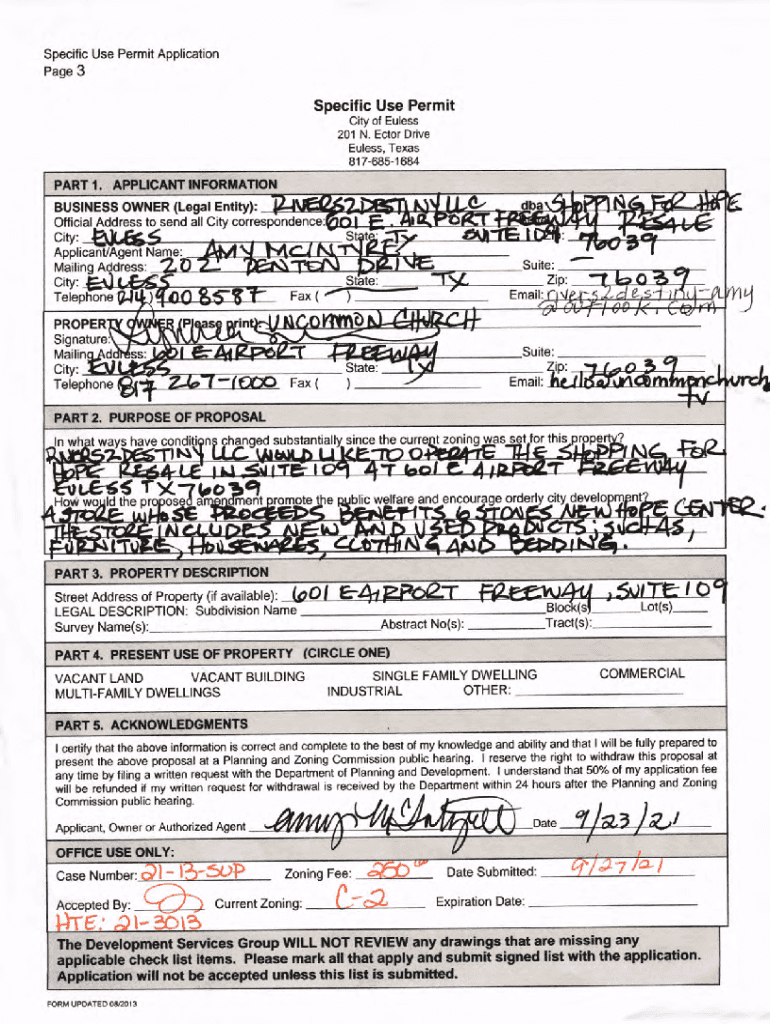 Specific Use Permit Application
Page 3
Specific Use Permit
City of Euless
201 N. Ector Drive
Euless, Texas
817-685-1684
PART 1. APPLICANT INFORMATION
BUSINESS OWNER (Legal Entity): RIVERS2DESTINY LLC dba SHOPPING FOR HOPE
Official Address to send all City correspondence: 601 E. AIRPORT FREEWAY RESALE
City: EULESS State: TX SUITE 109 : 76039
Applicant/Agent Name: AMY MCINTYRE
Mailing Address: 202 DENTON DRIVE Suite:
City: EULESS State: TX Zip: 76039
Telephone (214) 900 8587 Fax ( ) Email: rivers2destiny-amy
@outlook.com
PROPERTY OWNER (Please print): UNCOMMON CHURCH
Signature:
Mailing Address: 601 E AIRPORT FREEWAY Suite:
City: EULESS State: TX Zip: 76039
Telephone 817 267-1000 Fax ( ) Email: hello@uncommonchurch
tv
PART 2. PURPOSE OF PROPOSAL
In what ways have conditions changed substantially since the current zoning was set for this property?
RIVERS2DESTINY LLC WOULD LIKE TO OPERATE THE SHOPPING FOR
HOPE RESALE IN SUITE 109 AT 601 E AIRPORT FREEWAY
EULESS TX 76039
How would the proposed amendment promote the public welfare and encourage orderly city development?
A STORE WHOSE PROCEEDS BENEFITS 6 STONES NEW HOPE CENTER.
THE STORE INCLUDES NEW AND USED PRODUCTS; SUCH AS,
FURNITURE, HOUSEWARES, CLOTHING AND BEDDING.
PART 3. PROPERTY DESCRIPTION
Street Address of Property (if available): 601 E AIRPORT FREEWAY, SUITE 109
LEGAL DESCRIPTION: Subdivision Name Block(s) Lot(s)
Survey Name(s): Abstract No(s): Tract(s):
PART 4. PRESENT USE OF PROPERTY (CIRCLE ONE)
VACANT LAND VACANT BUILDING SINGLE FAMILY DWELLING COMMERCIAL
MULTI-FAMILY DWELLINGS INDUSTRIAL OTHER:
PART 5. ACKNOWLEDGMENTS
I certify that the above information is correct and complete to the best of my knowledge and ability and that I will be fully prepared to
present the above proposal at a Planning and Zoning Commission public hearing. I reserve the right to withdraw this proposal at
any time by filing a written request with the Department of Planning and Development. I understand that 50% of my application fee
will be refunded if my written request for withdrawal is received by the Department within 24 hours after the Planning and Zoning
Commission public hearing.
Applicant, Owner or Authorized Agent Date 9/23/21
OFFICE USE ONLY:
Case Number: 21-13-SUP Zoning Fee: 250 Date Submitted: 9/27/21
Accepted By: Current Zoning: C-2 Expiration Date:
HTE: 21-3013
The Development Services Group WILL NOT REVIEW any drawings that are missing any
applicable check list items. Please mark all that apply and submit signed list with the application.
Application will not be accepted unless this list is submitted.
FORM UPDATED 08/2013